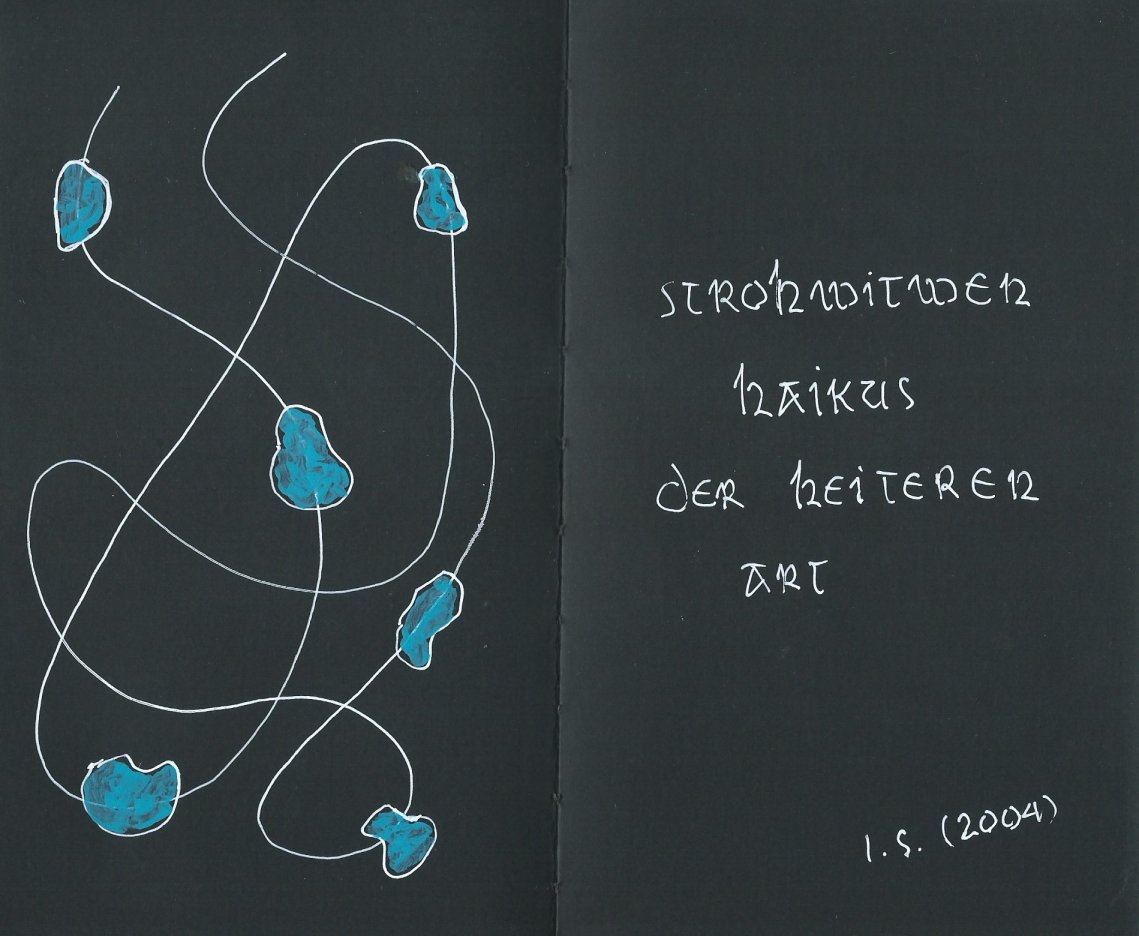 STROHWITWEN
HAIKUS
DER HEITEREN
ART
I.S. (2004)